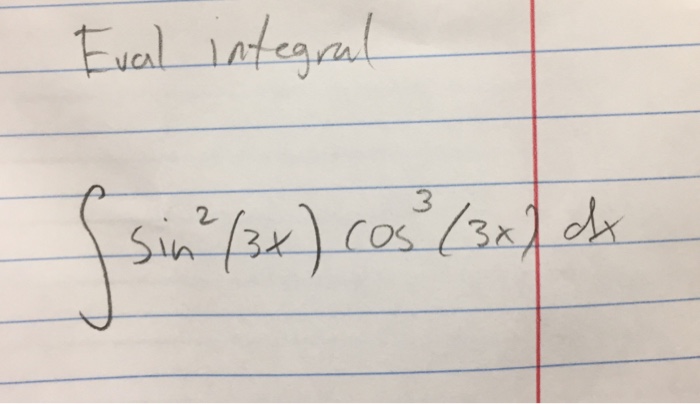 Eval integral
∫ sin²(3x) cos³(3x) dx